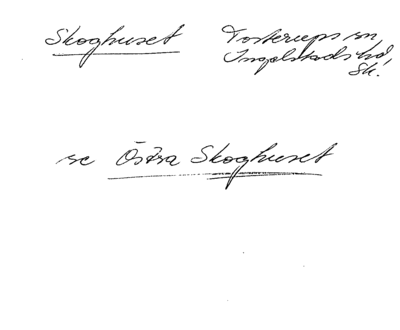 Skoghuset Tosterups sn,
Ingelstads hd,
Sk.
se Östra Skoghuset